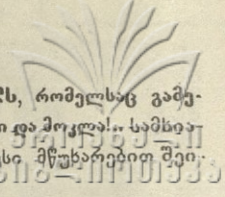 ს, რომელსაც გამე-
ი და მოკლა!.. სამხია-
სი მწუხარებით შეი-